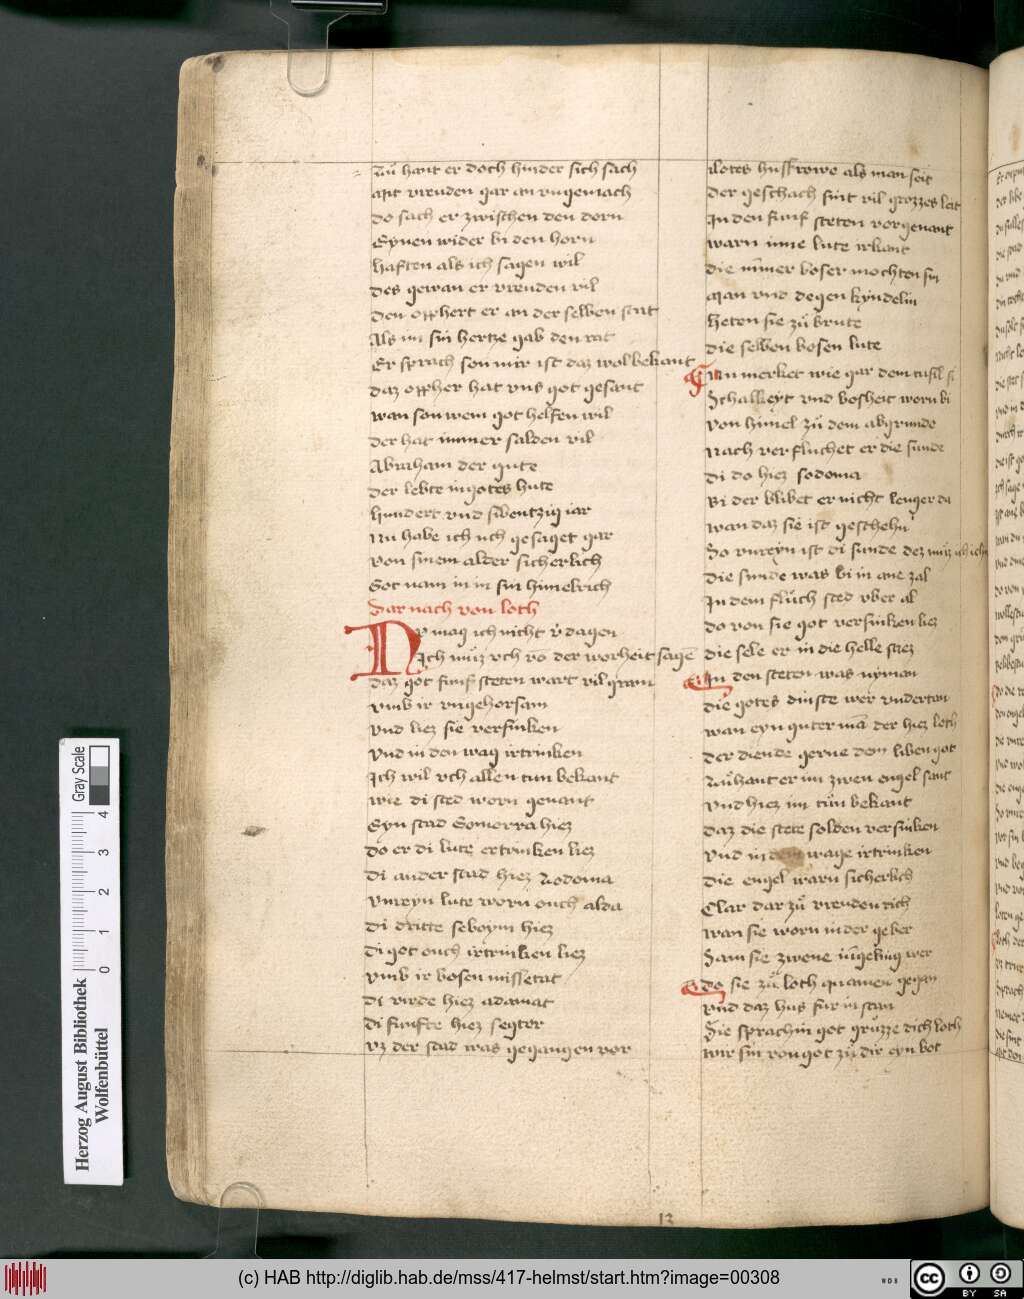 Zuͦ hant er doch hinder sich sach
Mit vreuden gar an vngemach
do sach er zwischen den dorn
Eynen wider bi den horn
haften als ich sagen wil
des gewan er vreuden vil
Den opphert er an der selben stat
Als im sin hertze gab den rat
Er sprach son mir ist daz wol bekant
daz oppher hat vns got gesant
wan son wem got helfen wil
der hat immer salden vil
Abraham der gute
der lebte in gotes hute
hundert vnd sibentzig iar
Nu habe ich uch gesaget gar
von sinem alder sicherlich
Got nam in in sin himelrich
Dar nach von loth
Nv mag ich nicht v̄dagen
Ich muͦz vch vō der worheit sagē
daz got funf steten wart vil gram
vmb ir vngehorsam
vnd liez sie versinken
vnd in den wag irtrinken
Ich wil vch allen tun bekant
wie di sted worn genant
Eyn stad Gomorra hiez
do er di lute ertrinken liez
di ander stad hiez Zodoma
vnreyn lute worn ouch alda
di dritte seboym hiez
di got ouch irtrinken liez
vmb ir bosen missetat
di virde hiez adamat
di funfte hiez segor
vz der stad was gegangen vor
Lotes husfrowe als man seit
der geschach sint vil grozzes leit
In den funf steten vorgenant
warn inne lute irkant
die nimer boser mochten sin
Man vnd degen kyndelin
heten sie zuͦ brute
die selben bosen lute
Nu merket wie gar dem tufil si
Schalkeyt vnd bosheit worn bi
von himel zuͦ dem abgrunde
nach ver fluchet er die sunde
di do hiez sodoma
Bi der blibet er nicht lenger da
wan daz sie ist geschehn
So vnreyn ist di sunde dez muͦz ich iehn
die sunde was bi in ane zal
In dem fluͦch sted vber al
do von sie got versinken liez
die sele er in die helle stiez
In den steten was nyman
die gotes dinste wer vndertan
wan eyn guter mā der hiez loth
der diende gerne dem liben got
Zuͦ hant er im zwen engel sant
vnd hiez im tuͦn bekant
daz die stete solden versinken
vnd in dem wage irtrinken
die engel warn sicherlich
Clar dar zuͦ vreuden rich
wan sie worn in der geber
Sam sie zwene iūgeling wer
do sie zuͦ loth quamen gegan
vnd daz hus fur in stan
Sie sprachin got gruͦzze dich loth
wir sin von got zuͦ dir eyn bot
13
Herzog August Bibliothek
Wolfenbüttel
0 1 2 3 4
Gray Scale
(c) HAB http://diglib.hab.de/mss/417-helmst/start.htm?image=00308
WDB
cc BY SA